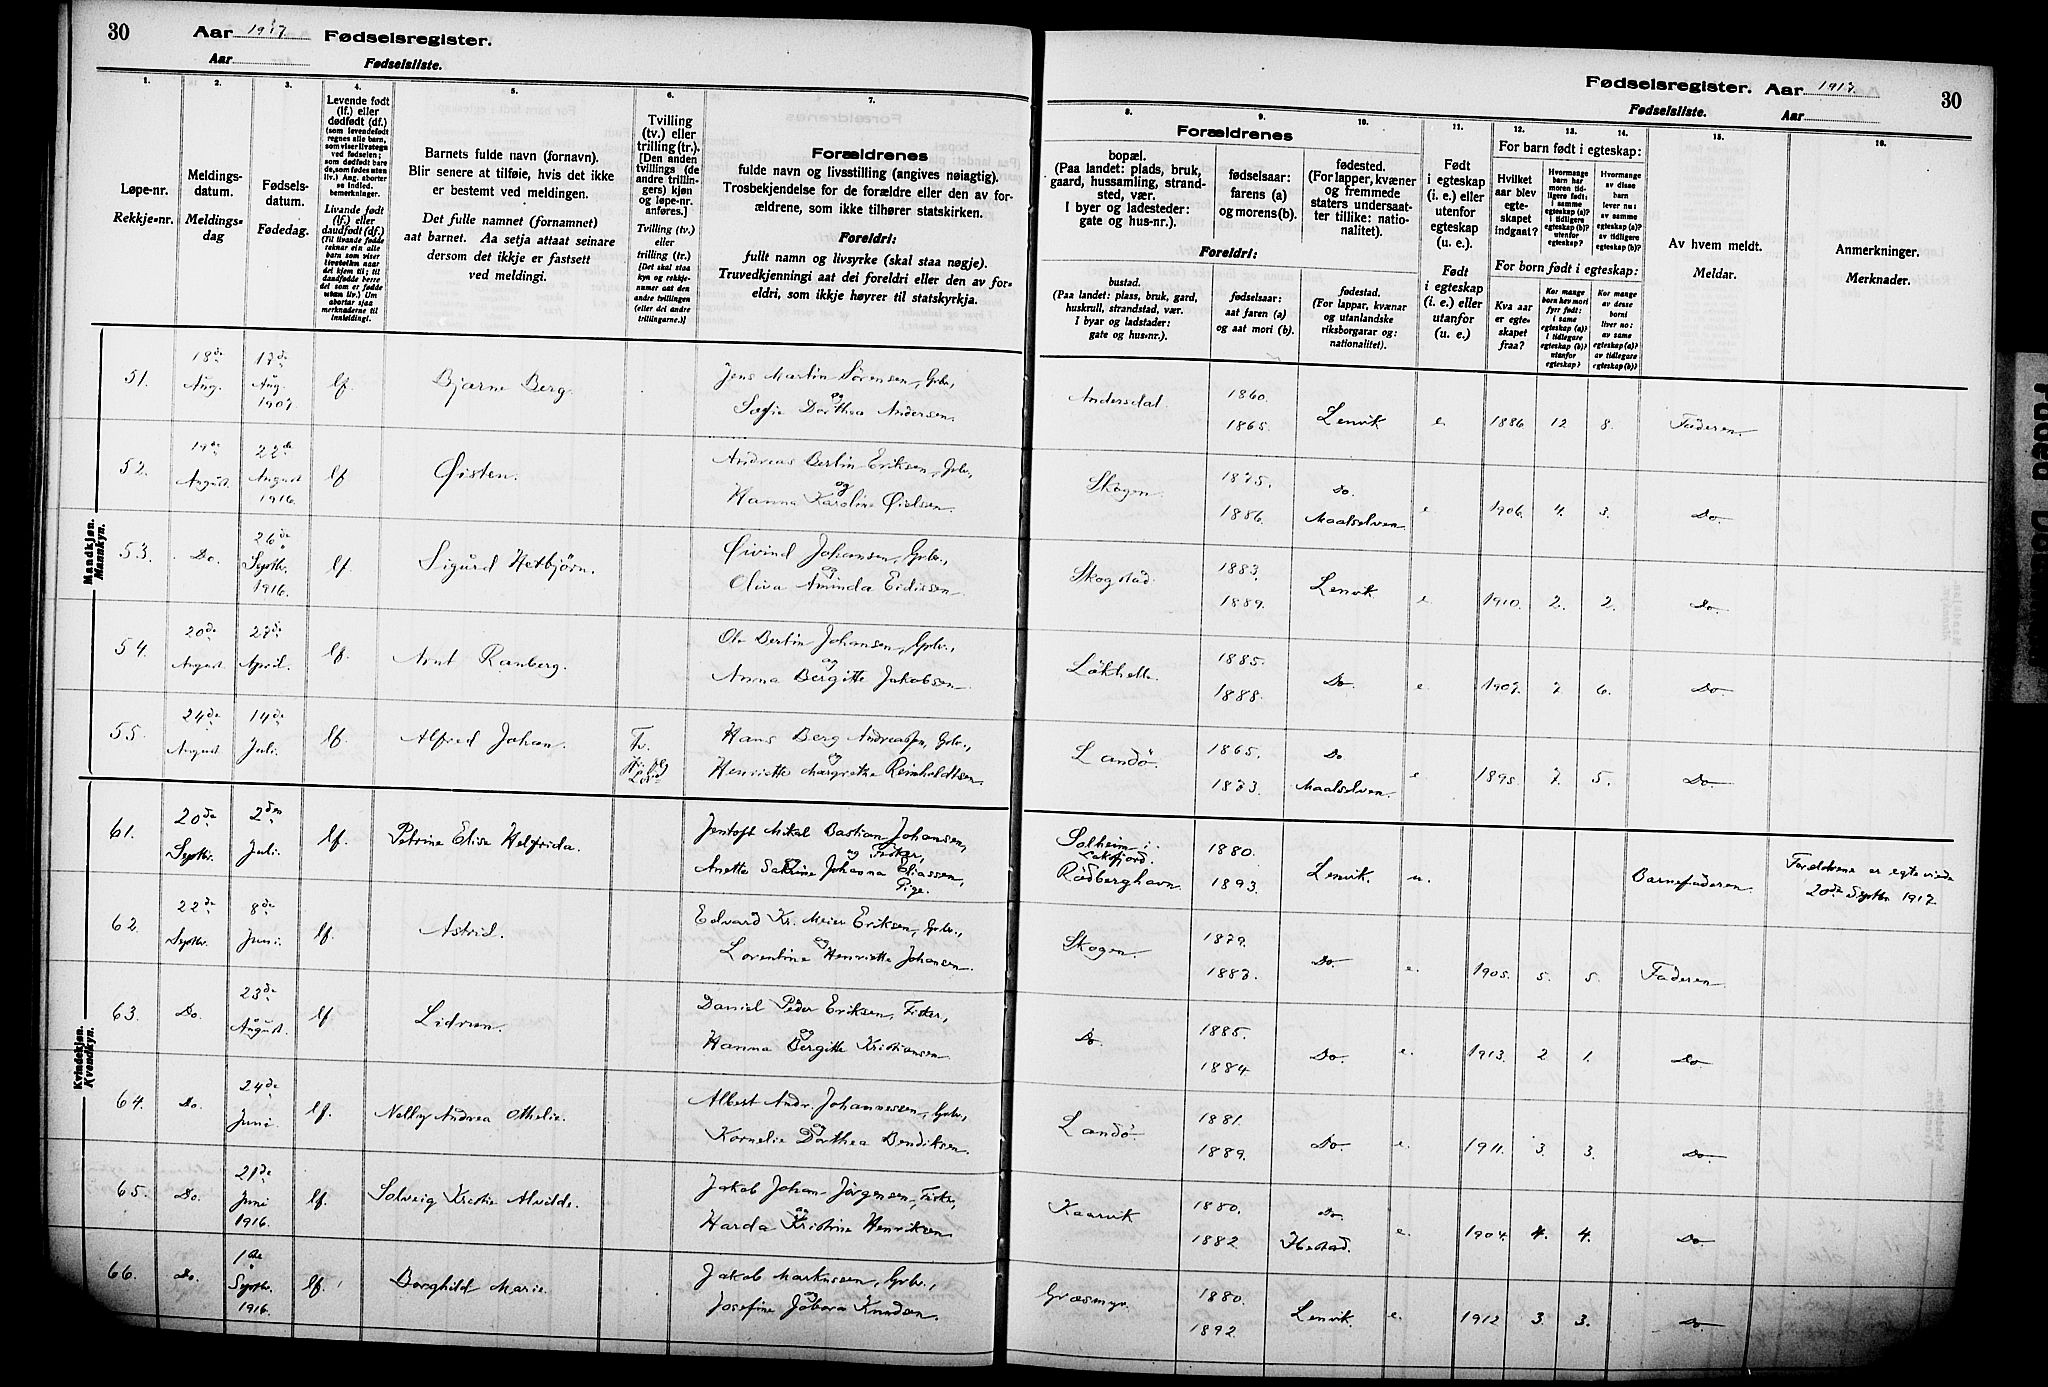 30 Aar 1917. Fødselsregister.
Aar Fødselsliste.
Fødselsregister. Aar 1917. 30
Fødselsliste. Aar
1. 2. 3. 4. 5. 6. 7.
8. 9. 10. 11. 12. 13. 14. 15. 16.
Løpe-nr.
Rekkje-nr.
Meldings-
datum.
Meldings-
dag
Fødsels-
datum.
Fødedag.
Levende født
(lf.) eller
dødfødt (df.)
(som levendefødt
regnes alle barn,
som viser livstegn
ved fødselen;
som dødfødt bare
de, som fødes uten
liv.) Ang. aborter
se indled.
bemerkninger.
Livande født
(lf.) eller
daudfødt (df.)
Barnets fulde navn (fornavn).
Blir senere at tilføie, hvis det ikke
er bestemt ved meldingen.
Det fulle namnet (fornamnet)
aat barnet. Aa setja attaat seinare
dersom det ikkje er fastsett
ved meldingi.
Tvilling
(tv.) eller
trilling (tr.).
[Den anden
tvillings (de
andre trillin-
gers) kjøn
og løpe-nr.
anføres.]
Tvilling (tv.)
eller
trilling (tr.)
[Det skal staa
kyn og rekkje-
numer aat den
andre tvillingen
(eller dei andre
trillingarne.)]
Forældrenes
fulde navn og livsstilling (angives nøiagtig).
Trosbekjendelse for de forældre eller den av for-
ældrene, som ikke tilhører statskirken.
Foreldri:
fullt namn og livsyrke (skal staa nøgje).
Truvedkjenningi aat dei foreldri eller den av for-
eldri, som ikkje høyrer til statskyrkja.
Forældrenes
bopæl.
(Paa landet: plads, bruk,
gaard, hussamling, strand-
sted, vær.
I byer og ladesteder:
gate og hus-nr.).
fødselsaar:
farens (a)
og morens (b).
fødested.
(For lapper, kvæner
og fremmede
staters undersaat-
ter tillike: natio-
nalitet).
Foreldri:
bustad.
(Paa landet: plass, bruk, gard,
huskrull, strandstad, vær.
I byar og ladstader:
gate og hus-nr.).
fødselsaar:
aat faren (a)
og aat mori (b).
fødestad.
(For lappar, kvænar
og utanlandske
riksborgarar og:
nationalitet).
Født
i egteskap
(i. e.) eller
utenfor
egteskap
(u. e.).
Født
i egteskap
(i. e.) eller
utanfor
(u. e.).
For barn født i egteskap:
Hvilket
aar blev
egte-
skapet
indgaat?
Hvormange
barn har
moren tid-
ligere født:
i samme
egteskap (a)?
i tidligere
egteskap (b)?
utenfor
egteskap?
Hvormange
av disse
barn
lever nu:
av samme
egteskap (a)?
av tidligere
egteskap (b)?
For born født i egteskap:
Kva aar
er egte-
skapet
fraa?
Kor mange
born hev mori
fyrr født:
i same
egteskap (a)?
i tidlegare
egteskap (b)?
utanfor
egteskap?
Kor mange
av desse
borni
liver no:
av same
egteskap (a)?
av tidlegare
egteskap (b)?
Av hvem meldt.
Meldar.
Anmerkninger.
Merknader.
Mandkjøn.
Mannkyn.
51. 18de Aug. 17de Aug. 1907 lf. Bjarne Berg. Jens Martin Sørensen, Grbr., og Sofie Dorthea Andersen. Andersdal. 1860. 1865. Lenvik e. 1886 12 8. Faderen.
52. 19de August. 22de August 1916. lf Øisten. Andreas Bertin Eriksen, Grbr., og Hanna Karoline Øielsen. Skogen. 1875. 1886. Do. Maalselven. e 1906. 4. 3. Do.
53. Do. 26de Septbr. 1916. lf. Sigurd Hetbjørn. Øivind Johansen, Grbr., og Oliva Aminda Eidissen. Skogstad. 1883. 1889. Lenvik. e. 1910. 2. 2. Do.
54. 20de August 27de April. lf. Arnt Ranberg. Ole Bertin Johansen, Grbr., og Anna Bergitte Jakobsen. Løkhelle. 1885. 1888. Do. e. 1907. 7. 6. Do
55. 24de August 14de Juli. lf. Alfred Johan. Tv. Hans Berg Andreassen, Grbr., og Henriette Margrethe Reinholdtsen. Landø. 1865. 1873 Do Maalselven. e 1895. 7. 5. Do.
Kvindekjøn.
Kvendkyn.
61. 20de Septbr. 2den Juli. lf. Petrine Elise Helfrida. Jentoft Mikal Bastian Johansen, og Fisker, Anette Johanna Eliassen, Pige. Solheim i Laksfjord. Rødberghavn. 1880. 1893. Lenvik. u. Barnefaderen. Forældrene er egteviede 20de Septbr. 1917
62. 22de Septbr. 8de Juni. lf. Astrid. Edvard Kr. Meier Eriksen, Grbr., og Lorentine Henriette Johansen. Skogen. 1879. 1883. Do. e. 1905. 5. 5. Faderen.
63. Do. 23de August. lf Lidrun. Daniel Peder Eriksen, Fisker, og Hanna Bergitte Kristiansen. Do. 1885. 1884. Do. e. 1913. 2 1. Do
64. Do. 24de Juni lf. Nelly Andrea Othelie. Albert Andr. Johannessen, Grbr., og Kornelie Dorthea Bendiksen. Landø. 1881. 1889. Do. e. 1911. 3. 3. Do.
65. Do. 21de Juni 1916. lf. Solveig Kristie Alvilde. Jakob Johan Jørgensen, Fisker, og Harda Kristine Henriksen Kaarvik 1880. 1882 Do. Ibestad. e. 1904. 4. 4. Do.
66. Do. 1ste Septbr. 1916. lf. Borghild Marie. Jakob Markussen, Grbr., og Josefine Jobara Knudsen. Græsmyr. 1880. 1892. Lenvik. e. 1912 3. 3. Do.